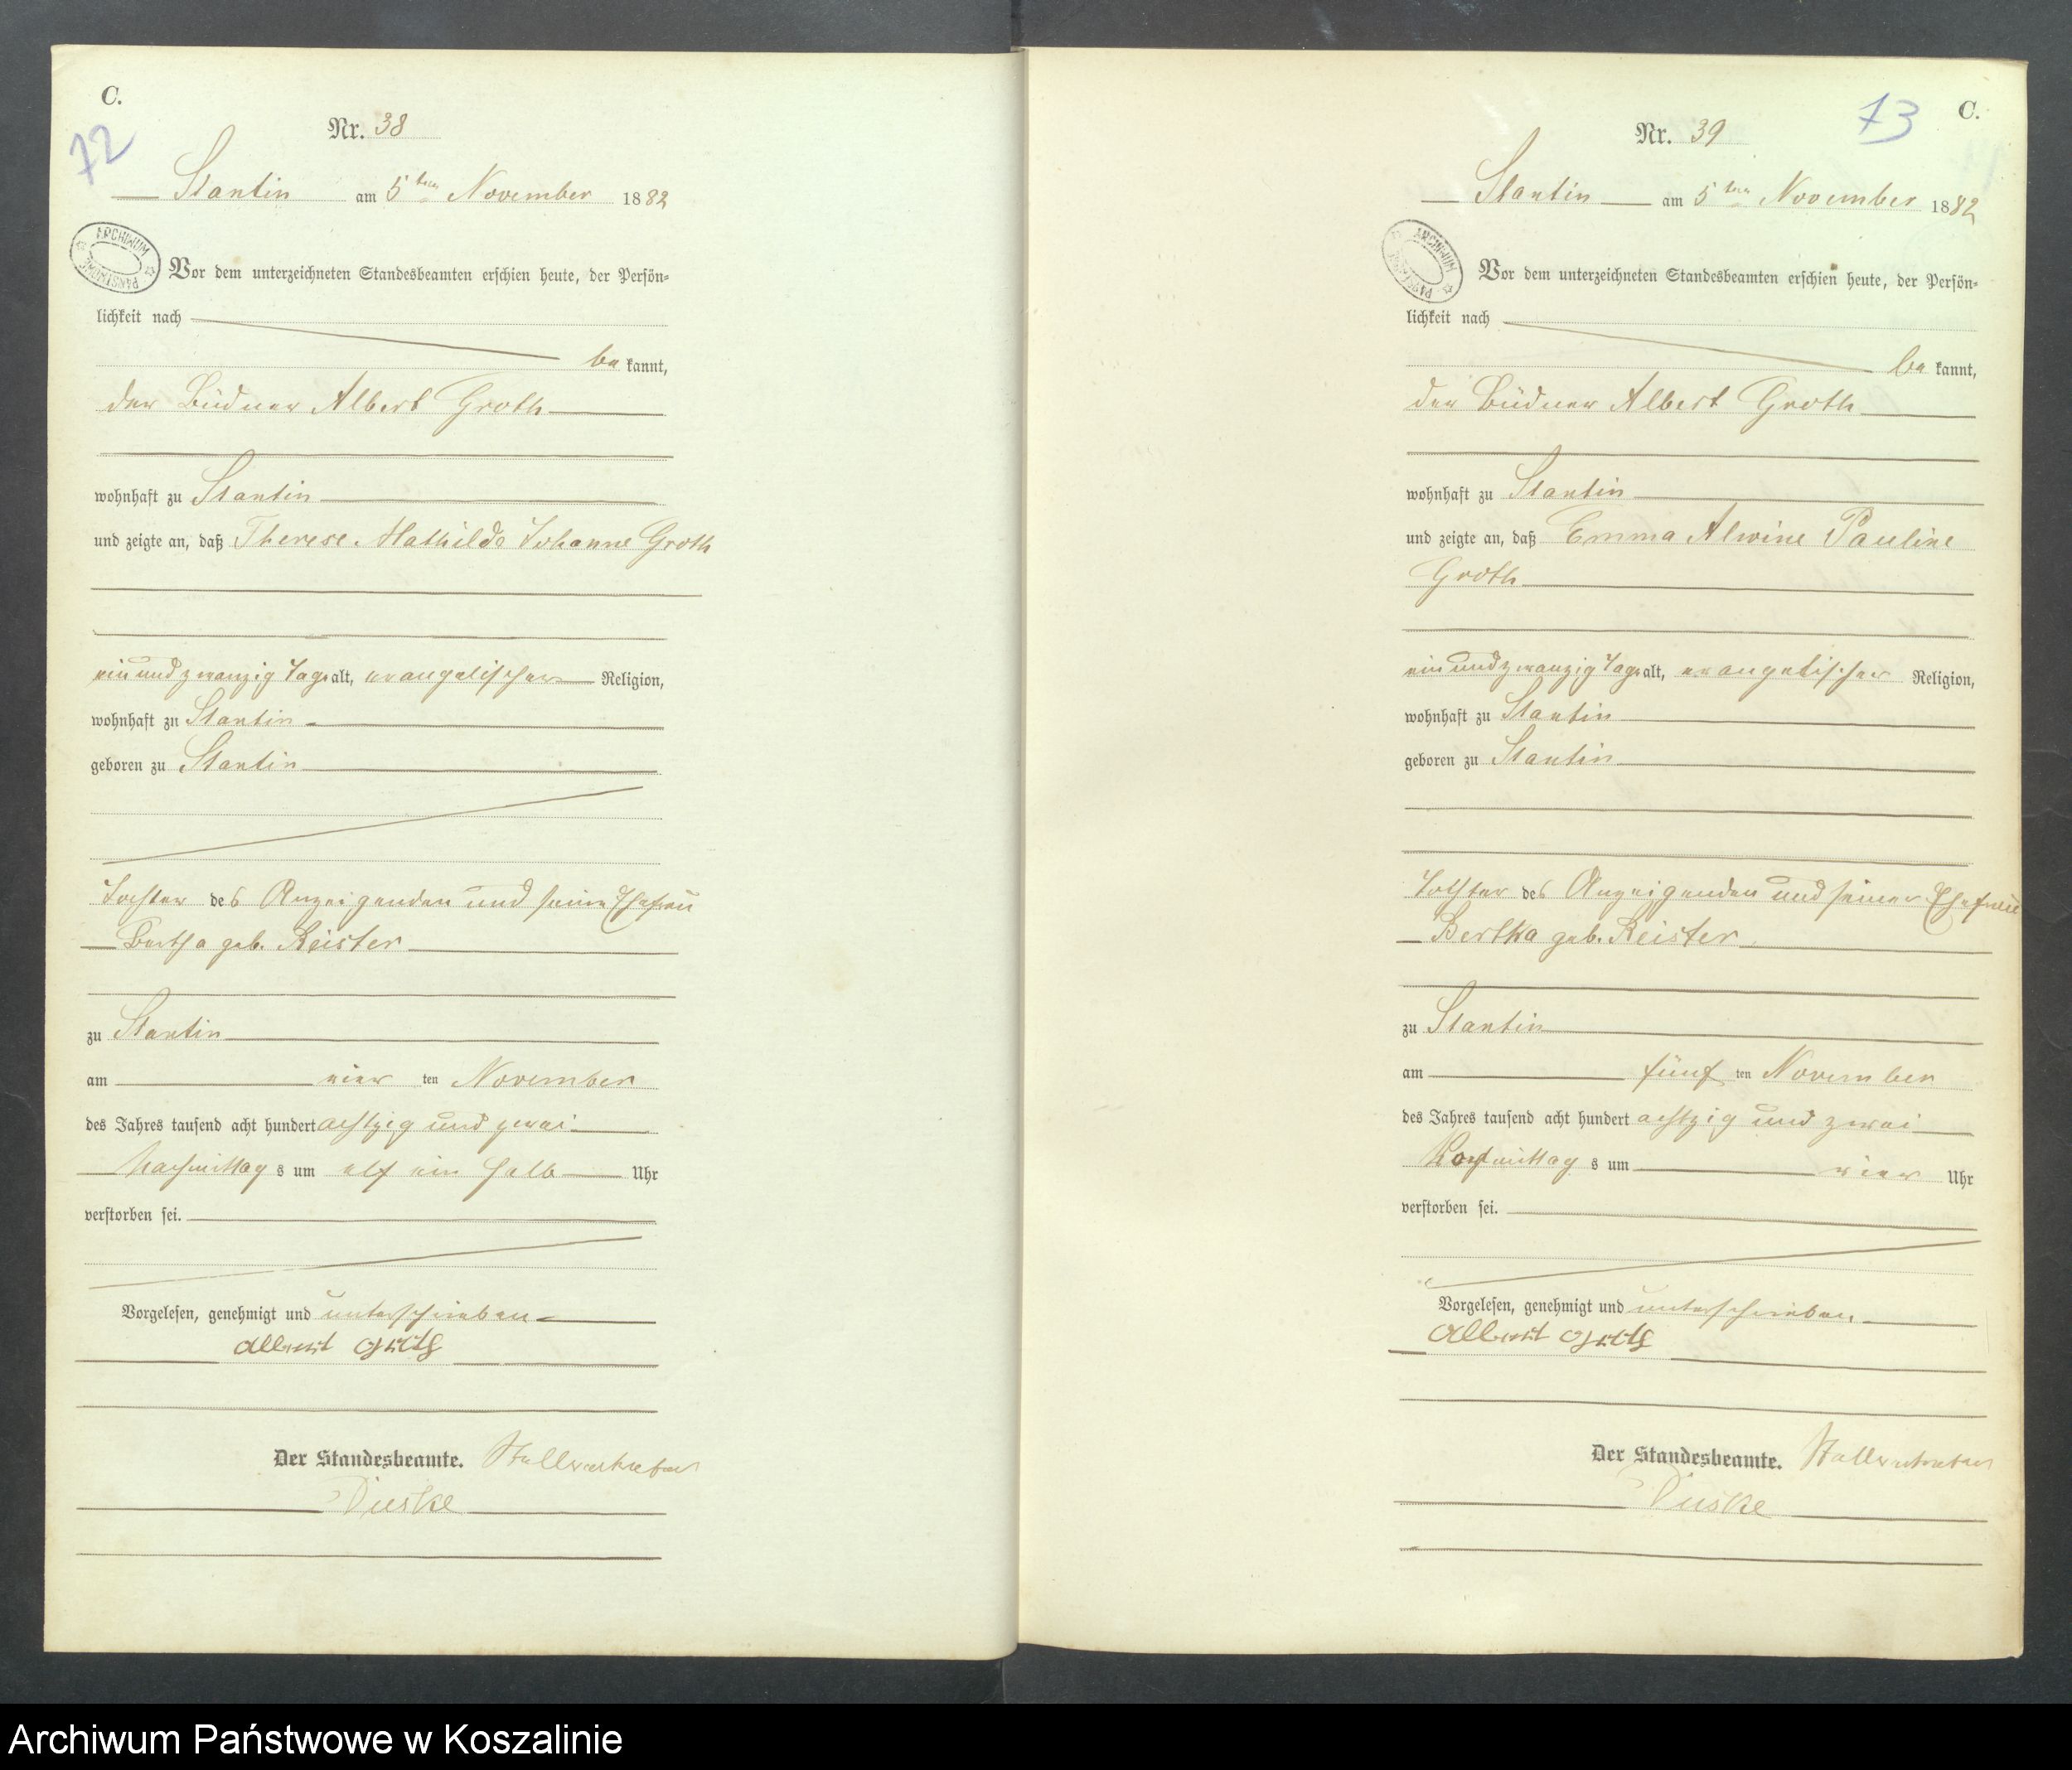 C.
72
Nr. 38
Stantin am 5ten November 1882
ARCHIWUM PAŃSTWOWE
Vor dem unterzeichneten Standesbeamten erschien heute, der Persön-
lichkeit nach
be kannt,
der Büdner Albert Groth
wohnhaft zu Stantin
und zeigte an, daß Therese Mathilde Johanne Groth
ein und zwanzig Tage alt, evangelischer Religion,
wohnhaft zu Stantin
geboren zu Stantin
Tochter des Anzeigenden und seiner Ehefrau
Bertha geb. Reister
zu Stantin
am vier ten November
des Jahres tausend acht hundert achtzig und zwei
Nachmittag s um elf ein halb Uhr
verstorben sei.
Vorgelesen, genehmigt und unterschrieben
Albert Groth
Der Standesbeamte. Stellvertreter
C.
73
Nr. 39
Stantin am 5ten November 1882
ARCHIWUM PAŃSTWOWE
Vor dem unterzeichneten Standesbeamten erschien heute, der Persön-
lichkeit nach
be kannt,
der Büdner Albert Groth
wohnhaft zu Stantin
und zeigte an, daß Emma Alwine Pauline
Groth
ein und zwanzig Tage alt, evangelischer Religion,
wohnhaft zu Stantin
geboren zu Stantin
Tochter des Anzeigenden und seiner Ehefrau
Bertha geb. Reister
zu Stantin
am fünf ten November
des Jahres tausend acht hundert achtzig und zwei
s um vier Uhr
verstorben sei.
Vorgelesen, genehmigt und unterschrieben
Albert Groth
Der Standesbeamte. Stellvertreter
Archiwum Państwowe w Koszalinie